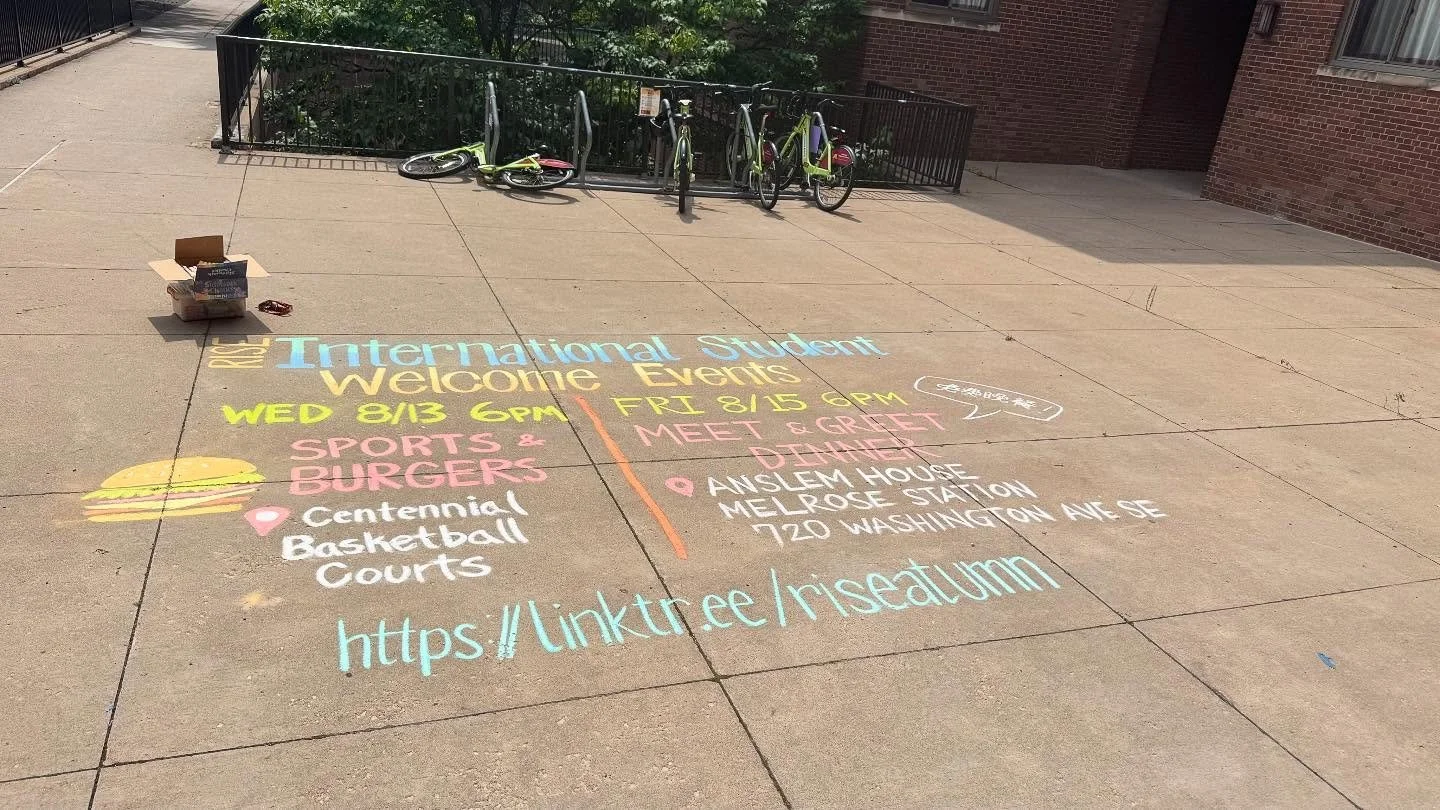 RISE
International Student
Welcome Events
WED 8/13 6PM
SPORTS &
BURGERS
Centennial
Basketball
Courts
FRI 8/15 6PM
MEET & GREET
DINNER
ANSLEM HOUSE
MELROSE STATION
720 WASHINGTON AVE SE
https://linktr.ee/riseatumn